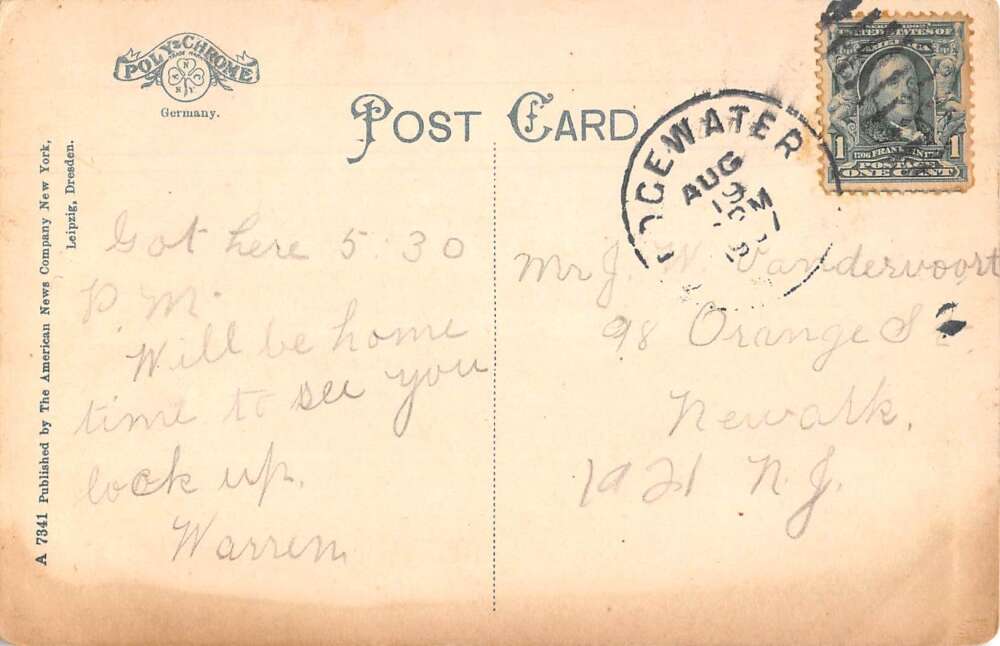 POLY-CHROME
Germany.
POST CARD
EDGEWATER
AUG
9
SERIES 1902
UNITED STATES OF
AMERICA
1706 FRANKLIN 1790
POSTAGE
1 ONE CENT 1
A 7341 Published by The American News Company New York,
Leipzig, Dresden.
Got here 5.30
P. M.
Will be home
time to see you
lock up.
Warren
Mr J. W. Vandervoort
98 Orange St
Newark,
N. J.